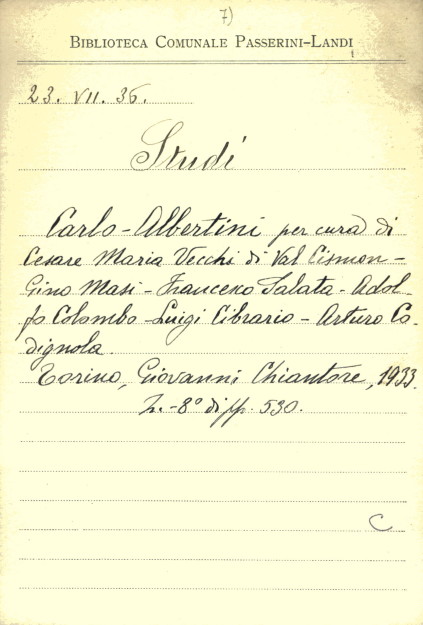 7)
BIBLIOTECA COMUNALE PASSERINI-LANDI
23. VII. 36.
Studi
Carlo-Albertini per cura di
Cesare Maria Vecchi di Val Cismon -
Gino Masi - Francesco Salata - Adol-
fo Colombo - Luigi Cibrario - Arturo Co-
dignola.
Torino, Giovanni Chiantore, 1933.
-8° di pp. 530.
C